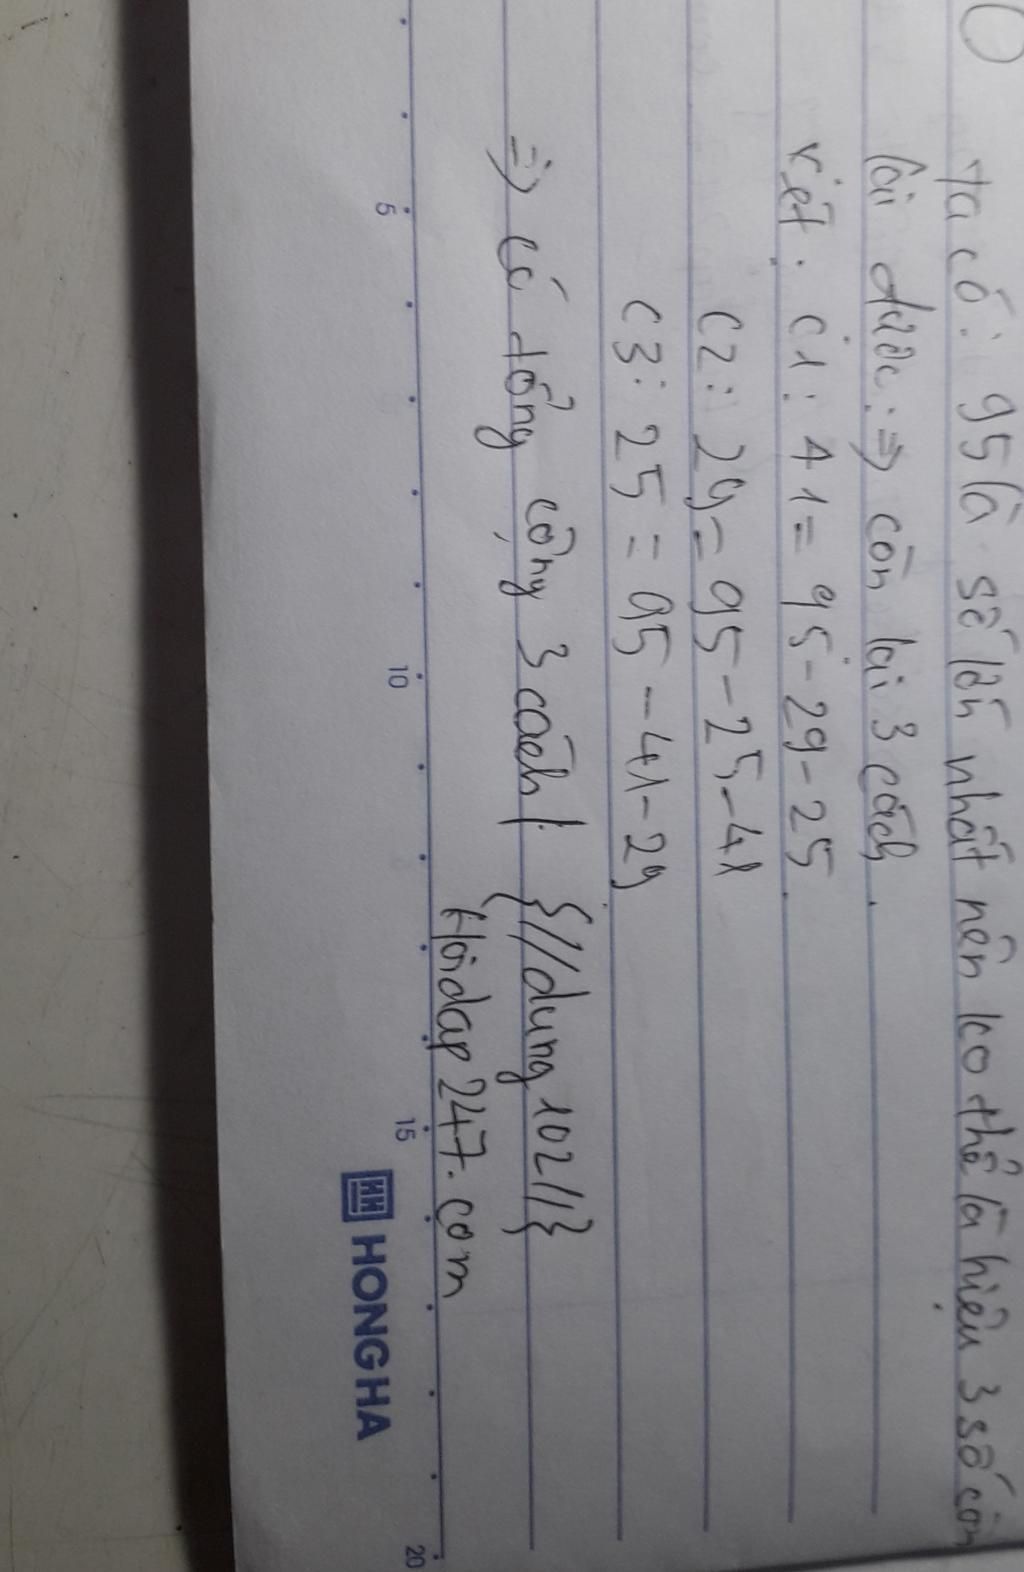 ta có: 95 là số lớn nhất nên ko thể là hiệu 3 số còn
lại được: => còn lại 3 cách.
xét: C1: 41 = 95 - 29 - 25
C2: 29 = 95 - 25 - 41
C3: 25 = 95 - 41 - 29
=> có tổng cộng 3 cách!. {//dung102//}
Hoidap247.com
5 10 15 20
HONG HA